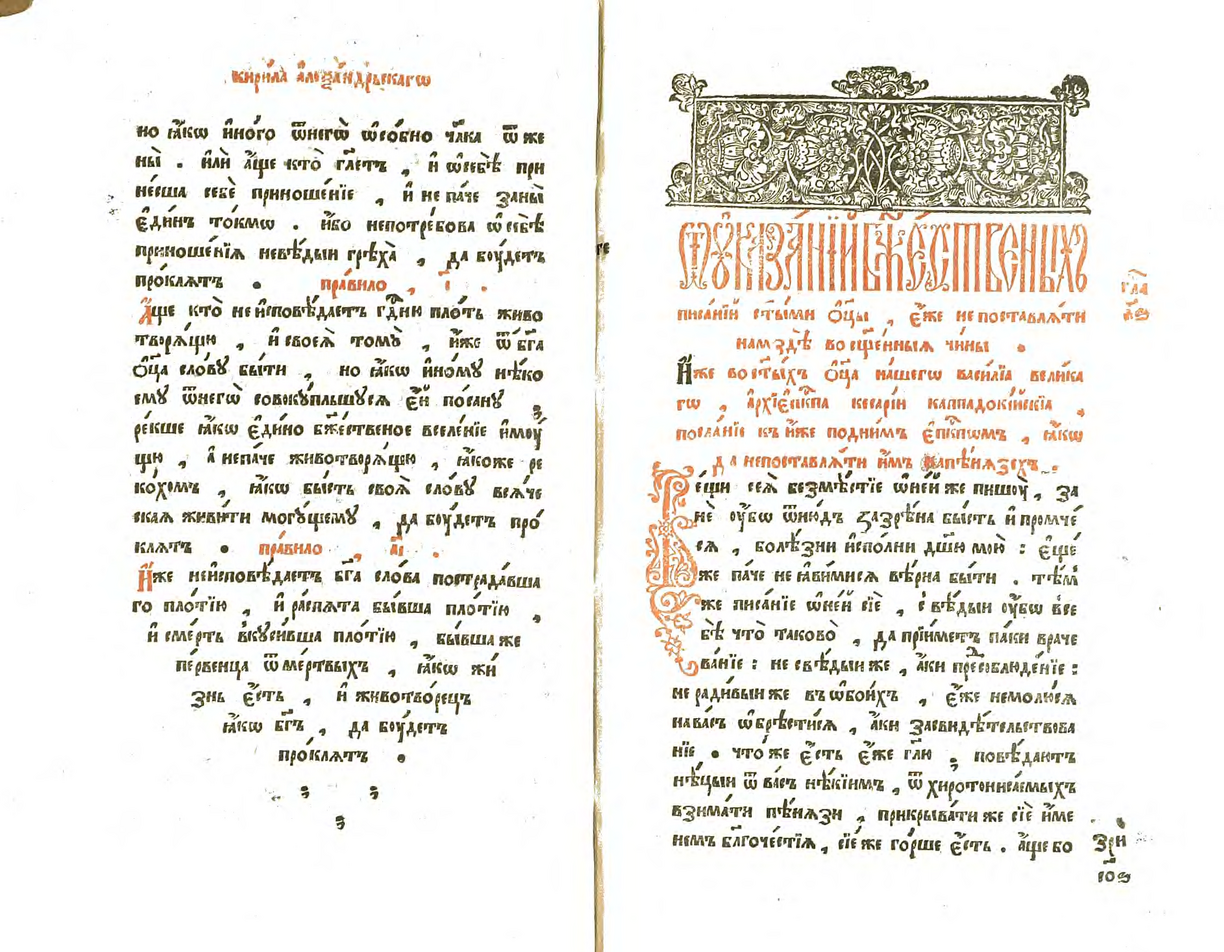 кири́ла а҆леѯа́ндрьскагѡ
но ꙗ҆́кѡ и҆но́го ѿнегѡ̀ ѡ҆со́бно чл҃ка ѿ же
ны̀ . и҆лѝ а҆́ще кто̀ гл҃етъ , и҆ ѡ҆себѣ̀ при
не́сша себѐ приноше́нїе , и҆ не па́че заны̀
є҆ди́нъ то́кмѡ . и҆́бо непотре́бова ѡ҆ себѣ̀
приноше́нїѧ невѣ́дыи грѣха̀ , да бо́удетъ
про́клѧтъ . пра́вило , і҃ .
А҆́ще кто̀ не и҆сповѣ́даетъ гд҇ню пло́ть живо
творѧ́щю , и҆ своеѧ̀ томꙋ̀ , и҆́же ѿ бг҃а
ѻ҆ц҃а сло́вꙋ бы́ти , но ꙗ҆́кѡ и҆но́мꙋ нѣ́ко
емꙋ ѿнегѡ̀ совокꙋ́пльшꙋсѧ є҆́й поса́нꙋ
ре́кше ꙗ҆́кѡ є҆ди́но бж҃е́ственое вселе́нїе и҆мо́у
щю , а҆ непа́че животворѧ́щю , ꙗ҆́коже ре
ко́хомъ , ꙗ҆́кѡ бы́сть своѧ̀ сло́вꙋ всѧ́че
скаѧ живи́ти могꙋ́щемꙋ , да бо́удетъ про́
клѧтъ . пра́вило , а҃і .
И҆́же неи҆сповѣ́даетъ бг҃а сло́ва пострада́вша
го пло́тїю , и҆ распѧ́та бы́вша пло́тїю ,
и҆ сме́рть вкꙋси́вша пло́тїю , бы́вша же
пе́рвенца ѿ ме́ртвыхъ , ꙗ҆́кѡ жи́
знь є҆́сть , и҆ животво́рецъ
ꙗ҆́кѡ бг҃ъ , да бо́удетъ
про́клѧтъ .
Ѿ ᲂу҆каза́нїи бж҃е́ственыхъ
гла
писа́нїй ст҃ы́ми ѻ҆ц҃ы̀ , є҆́же не поставлѧ́ти
на мздѣ̀ во сщ҃е́нныѧ чи́ны .
И҆́же во ст҃ы́хъ ѻ҆ц҃а̀ на́шегѡ васи́лїа вели́ка
гѡ , а҆рхїе҆пк҇па кесарі́и каппадокі́йскїѧ ,
посла́нїе къ и҆́же подни́мъ є҆пк҇пѡмъ , ꙗ҆́кѡ
да непоставлѧ́ти и҆̀мъ напѣ́нѧзехъ .
Ве́щи сеѧ̀ безмѣ́стїе ѡ҆не́й же пишо̀у , за
нѐ ᲂу҆́бѡ ѿню́дъ зазрѣ́на бы́сть и҆ промче́
сѧ , болѣ́зни и҆спо́лни дш҃ю мою̀ : є҆ще́
же па́че не ꙗ҆ви́мисѧ вѣ́рна бы́ти . тѣ́м
же писа́нїе ѡ҆не́й сїѐ , свѣ́дыи ᲂу҆́бѡ все
бѣ̀ что̀ таково̀ , да прїи́метъ па́ки враче
ва́нїе : не свѣ́дыи же , а҆́ки пресоблюде́нїе :
не ради́выи же въ ѡ҆бои́хъ , є҆́же немолю́сѧ
на ва́съ ѡ҆брѣ́стисѧ , а҆́ки засвидѣ́тельствова
нїе . что́ же є҆́сть є҆́же гл҃ю , повѣ́даютъ
нѣ́цыи ѿ ва́съ нѣ́кїимъ , ѿ хиротониса́емыхъ
взима́ти пѣ́нѧзи , прикрыва́ти же сїѐ и҆́ме
немъ бл҃гоче́стїѧ , сїе́ же го́рше є҆́сть . а҆́ще бо
зрѝ